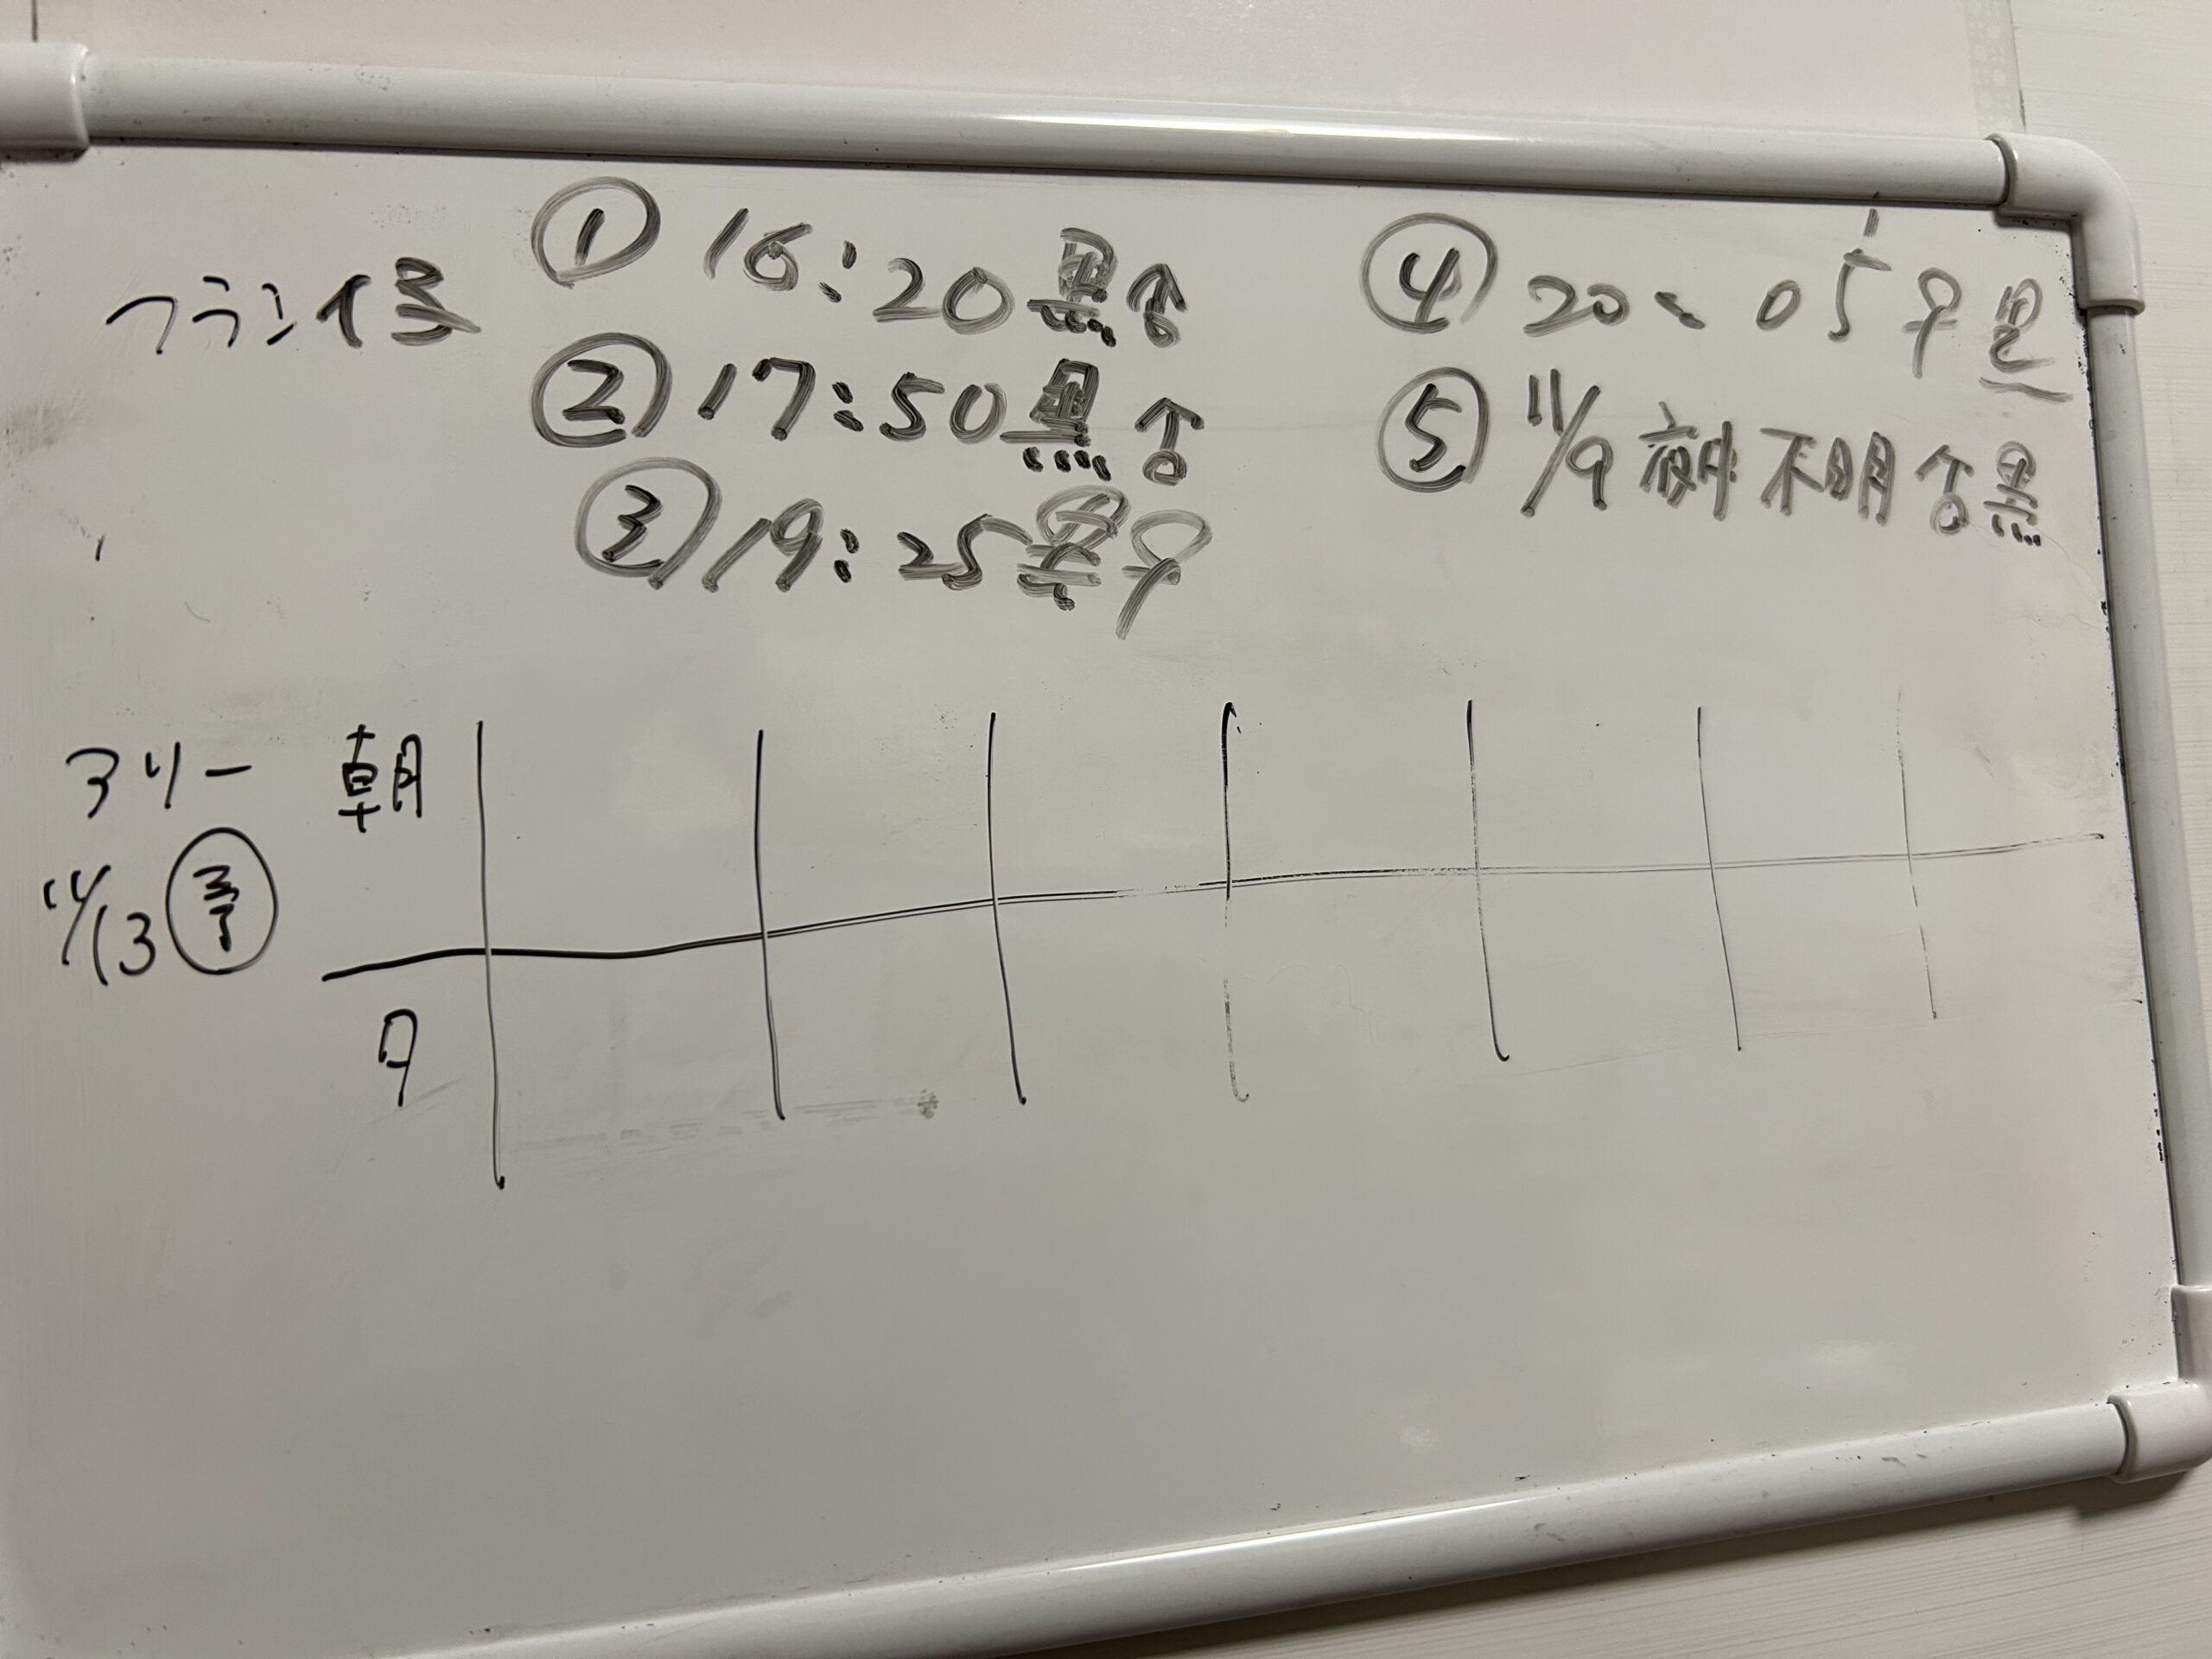 フラン
① 16:20 黒 ♂
② 17:50 黒 ♂
③ 19:25 黒 ♀
④ 20:05 ♀ 黒
⑤ 11/9 夜中 不明 ♂ 黒
アリー 朝
11/13 予
夕